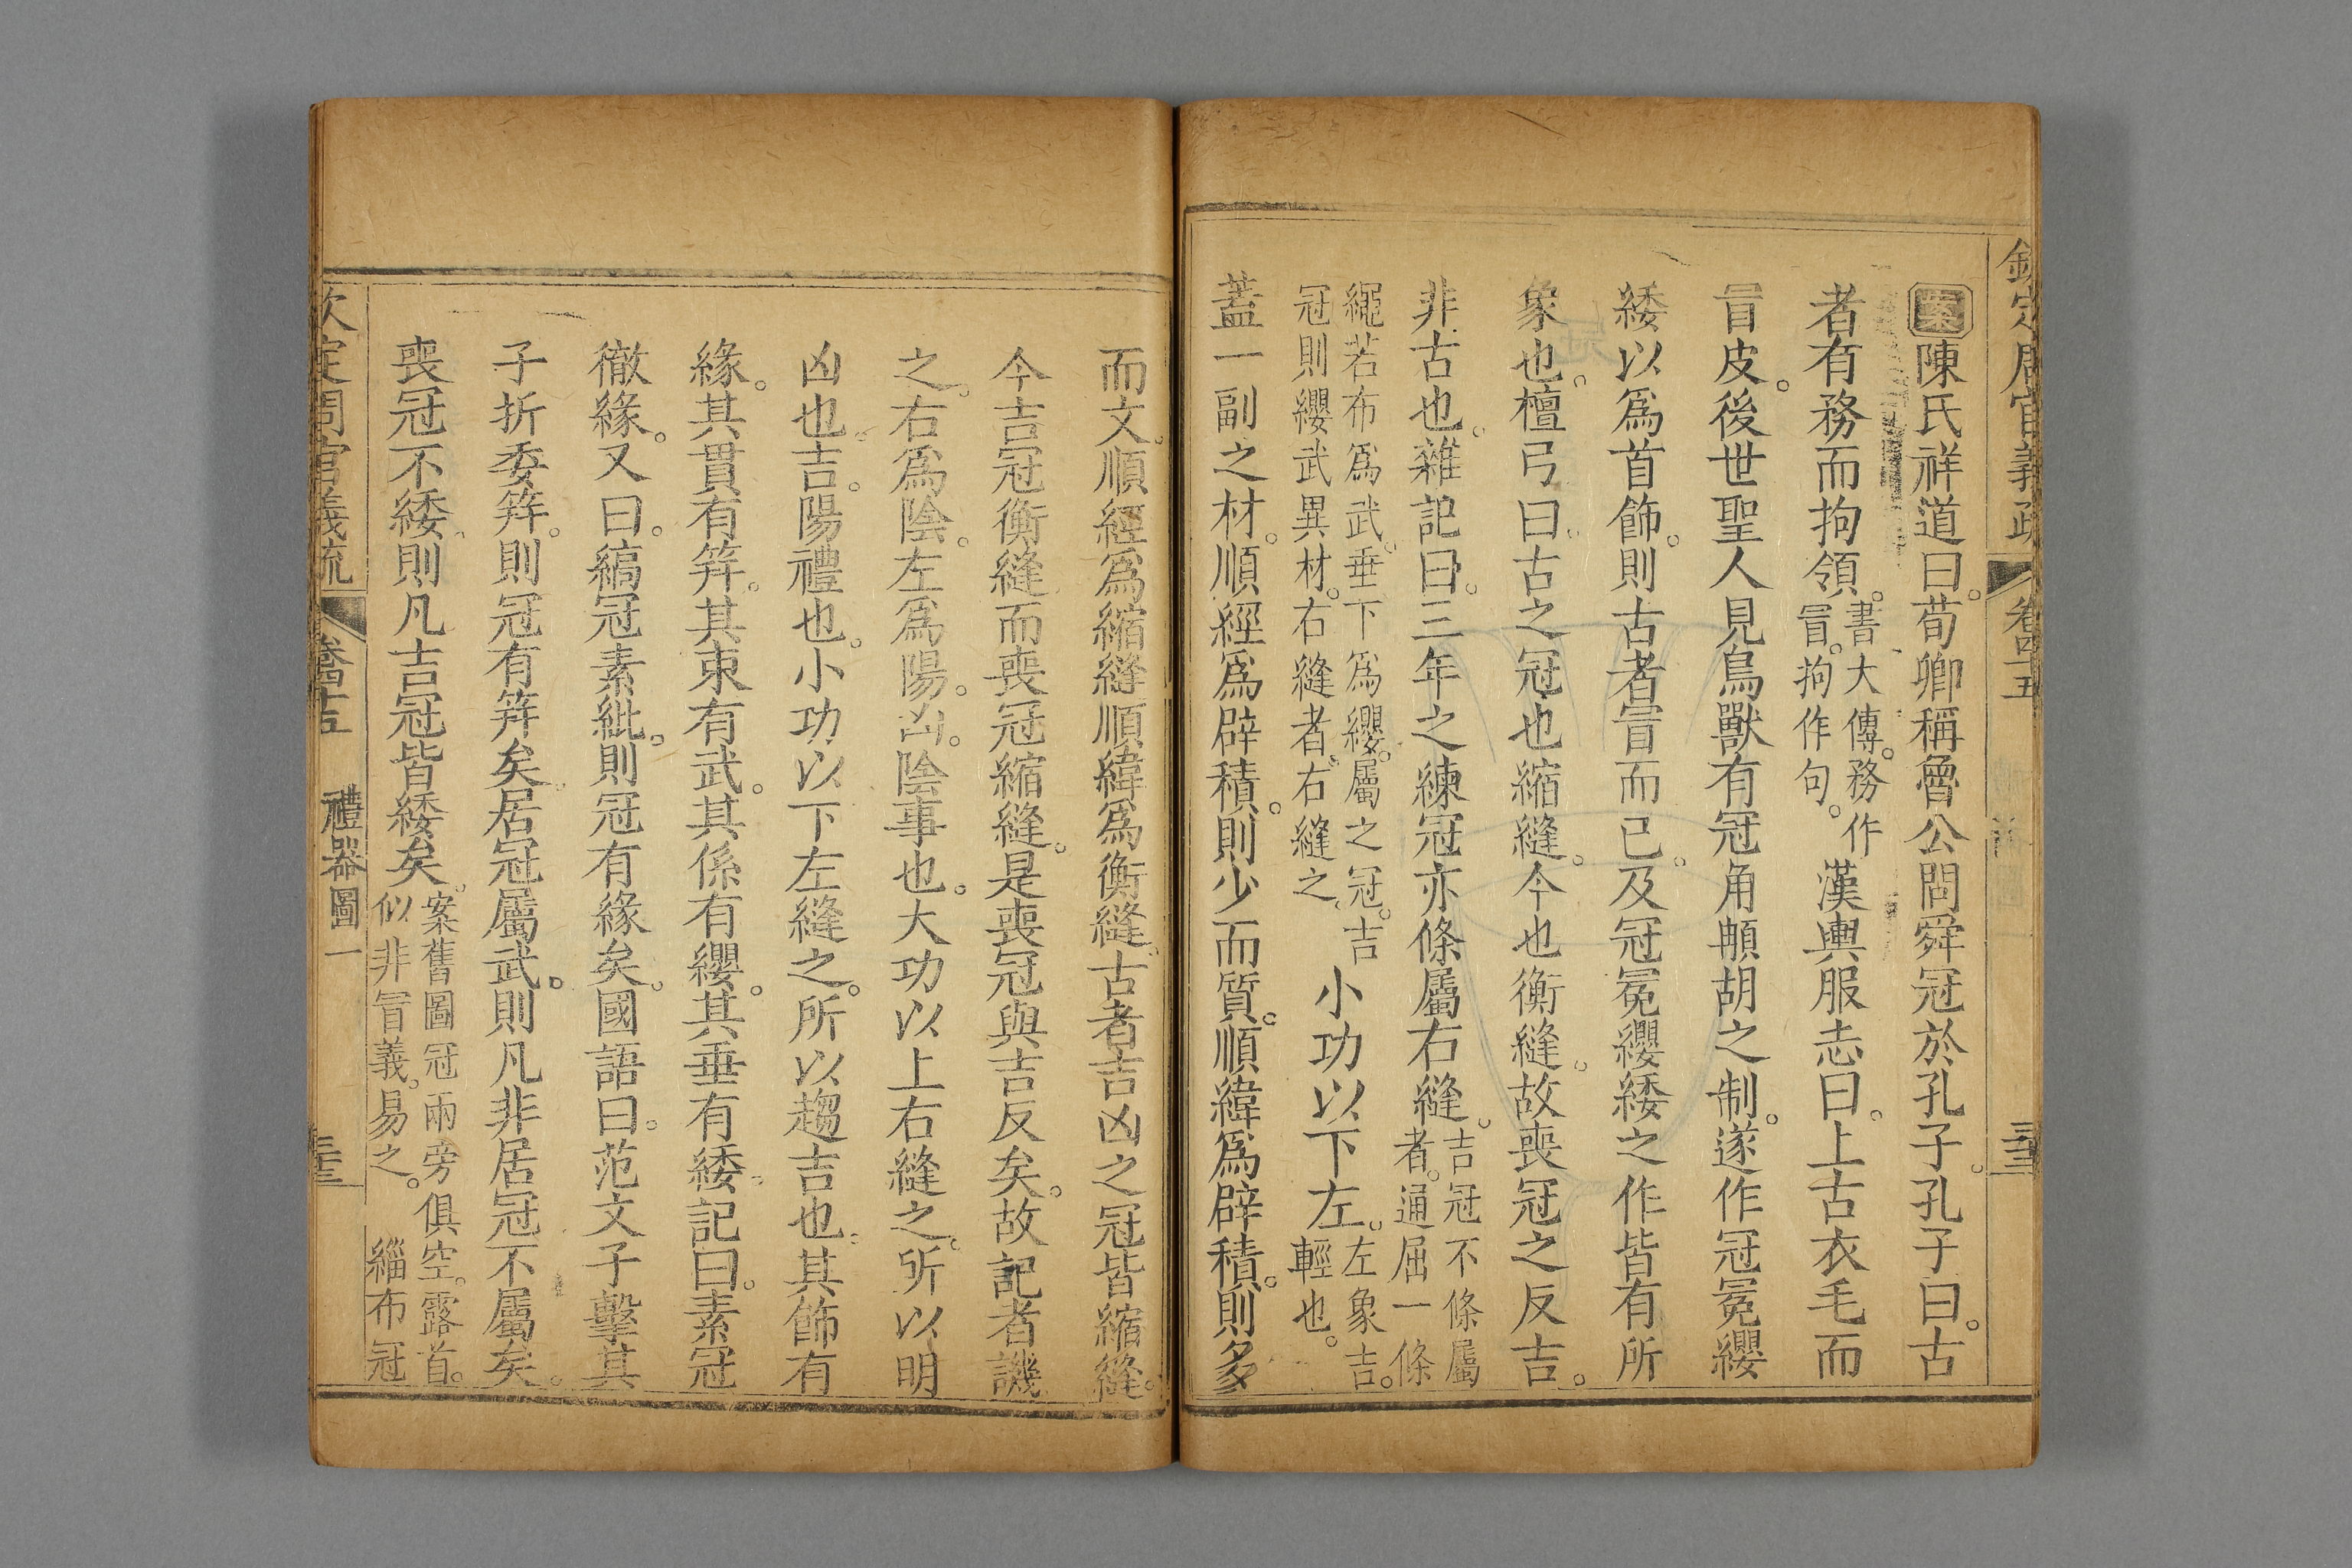 欽定周官義疏 卷四十五
案陳氏祥道曰。荀卿稱魯公問舜冠於孔子。孔子曰。古
者有務而拘領。書大傳。務作冒。拘作句。漢輿服志曰。上古衣毛而
冒皮。後世聖人見鳥獸有冠角䫇胡之制。遂作冠冕纓
緌以爲首飾。則古者冒而已。及冠冕纓緌之作皆有所
象也。檀弓曰。古之冠也縮縫。今也衡縫。故喪冠之反吉。
非古也。雜記曰。三年之練冠亦條屬右縫。吉冠不條屬者。通屈一條
繩若布爲武。垂下爲纓。屬之冠。吉冠則纓武異材。右縫者。右縫之。小功以下左。左象吉。輕也。
蓋一副之材。順經爲辟積。則少而質。順緯爲辟積。則多
而文。順經爲縮縫。順緯爲衡縫。古者吉凶之冠皆縮縫。
今吉冠衡縫而喪冠縮縫。是喪冠與吉反矣。故記者譏
之。右爲陰。左爲陽。凶。陰事也。大功以上右縫之。所以明
凶也。吉。陽禮也。小功以下左縫之。所以趨吉也。其飾有
緣。其貫有笄。其束有武。其係有纓。其垂有緌。記曰。素冠
徹緣。又曰。縞冠素紕。則冠有緣矣。國語曰。范文子擊其
子折委笄。則冠有笄矣。居冠屬武。則凡非居冠不屬矣。
喪冠不緌。則凡吉冠皆緌矣。案舊圖冠兩旁俱空。露首。似非冒義。易之。緇布冠
欽定周官義疏 卷四十五 禮器圖一